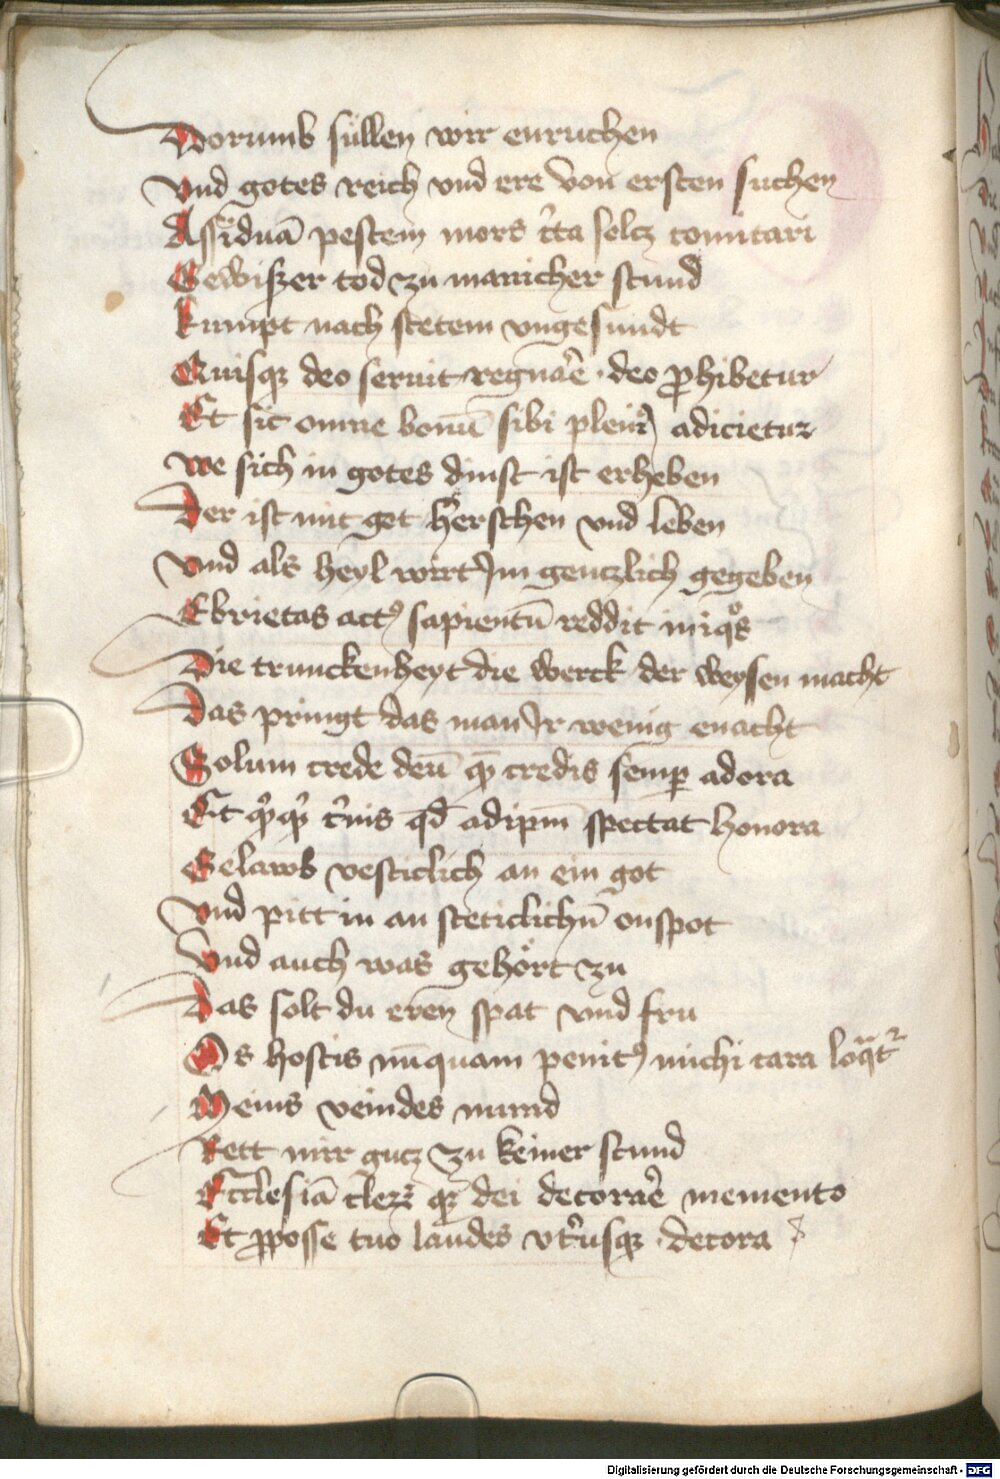 Dorumb süllen wir enruchen
Vnd gotes reich vnd ere von ersten suchen
Assiduā pestem mors c̓ta solet comitari
Gewiszer tod zu manicher stund
kumpt nach stetem vngesundt
Quisqz deo seruit regnar̄e deo ꝓhibetur
Et sic omne bonū sibi adicietur
we sich in gotes dinst ist erheben
Der ist mit got herschen vnd leben
Vnd als heyl wirt Im gentzlich gegeben
Ebrietas actꝰ sapientū reddit iniqͦs
Die trunckenheyt die werck der weysen macht
Das pringt das man Ir wenig enacht
Solum crede deū qp̄ credis semꝑ adora
Et c̓nis qd̄ adipm̄ spectat honora
Gelawb vesticlich an ein got
Vnd pitt in an steticlichn̄ onspot
Vnd auch was gehört zu
Das solt du eren spat vnd fru
Os hostis nūquam penitꝰ michi cara loqͣtr
Meins veindes mund
Rett mir gutz zu keiner stund
Ecclesiā cler̄ qz dei decorar̄e memento
Et ꝓposse tuo laudes vt̓usqz decora
Digitalisierung gefördert durch die Deutsche Forschungsgemeinschaft - DFG